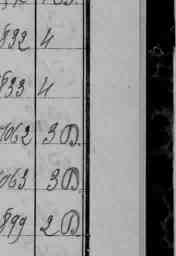 832 4
833 4
1062 3 D.
1063 3 D.
899 2 D.